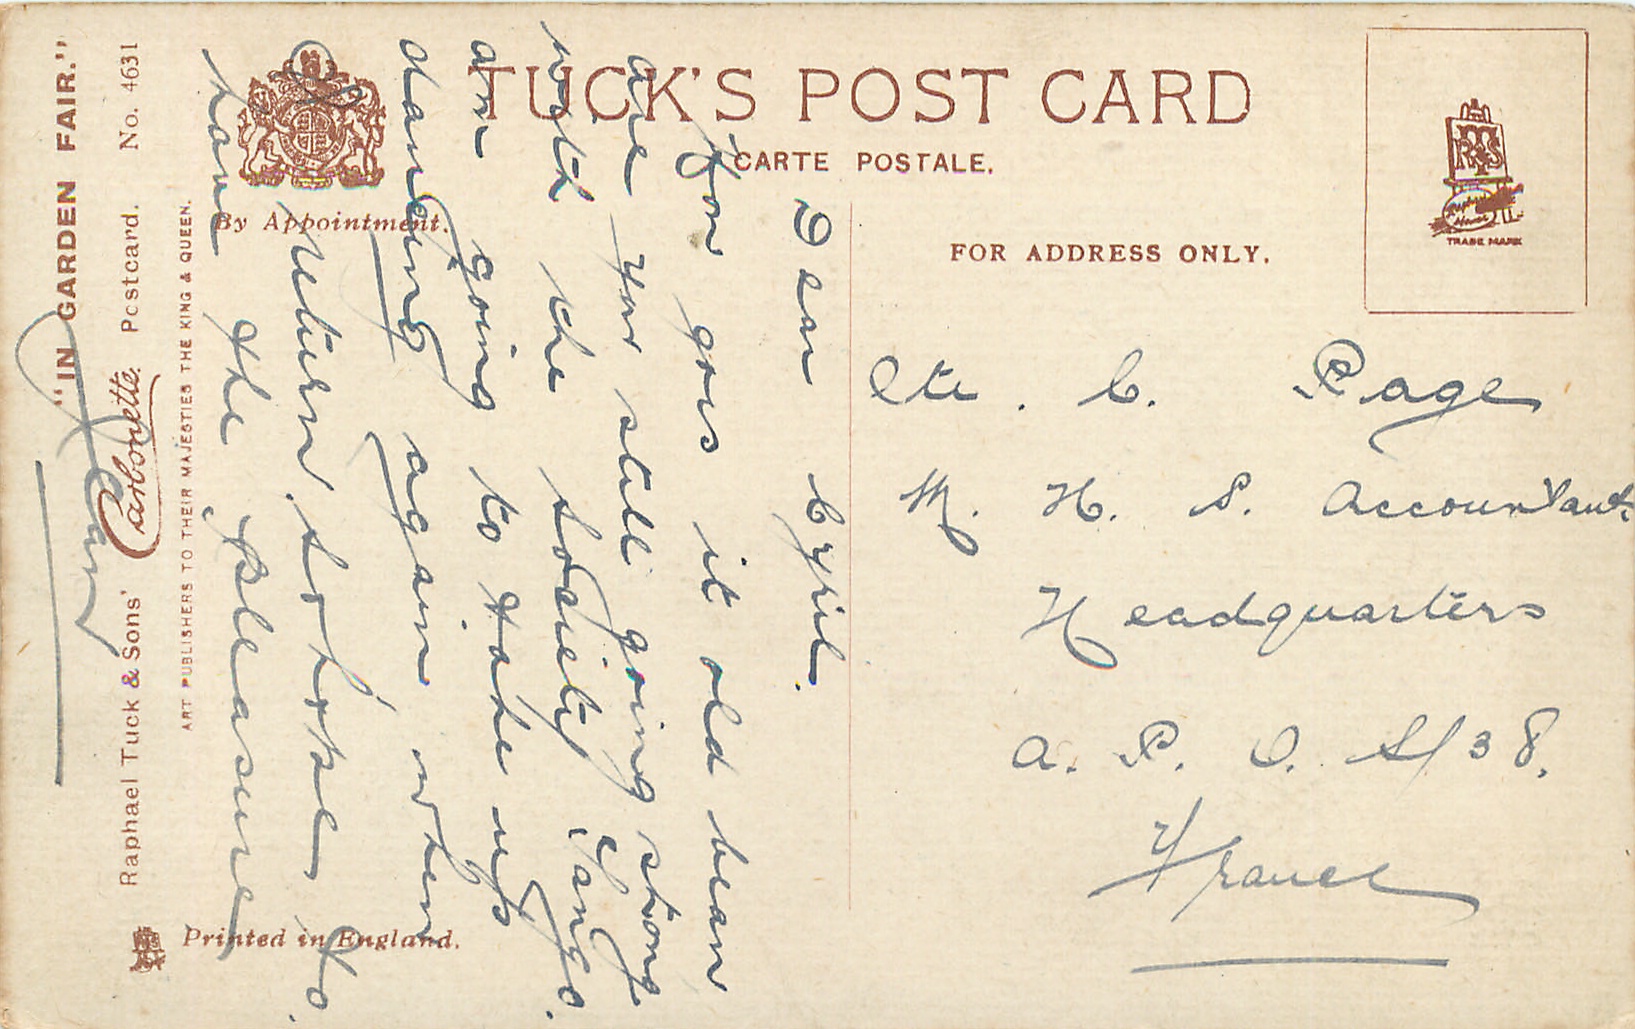 "IN GARDEN FAIR."
Raphael Tuck & Sons' Carbonette Postcard. No. 4631
ART PUBLISHERS TO THEIR MAJESTIES THE KING & QUEEN.
By Appointment.
TUCK'S POST CARD
CARTE POSTALE.
FOR ADDRESS ONLY.
TRADE MARK
Printed in England.
Dear Cyril.
How goes it old bean
are you still going strong
with the society Tango.
am going to take up
dancing again when
return so hope to
have the pleasure
Pte. C. Page
M. H. S. Accountant
Headquarters
A. P. O. S/38.
France